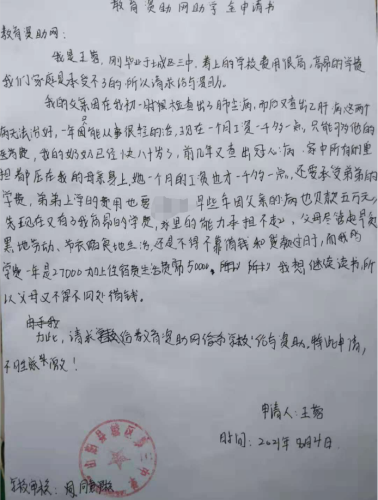 教育资助网助学金申请书
教育资助网：
我是王菊，刚毕业于城区三中，考上的学校费用很高，高昂的学费
我们家庭是承受不了的所以请求给与资助。
我的父亲因在我初一时候检查出了肺结病，而后又查出乙肝病这两个
病无法治好，一年只能从事很轻的活，现在一个月工资一千多一点，只能够他的
医药费，我的奶奶已经快八十岁了，前几年又查出冠心病，家中所有的重
担都落在我的母亲身上，她一个月的工资也才一千多一点，还要承受弟弟的
学费，弟弟上学的费用也要 早些年因父亲的病也贷款五万元
先现在又有了我高昂的学费，家里的能力承担不起，父母尽管起早贪
黑地劳动、节衣缩食地生活，还是不得不靠借钱和贷款过日子，而我的
学费一年是27000加上住宿费生活费需50000。所以我想继续读书，所
以父母又不得不四处借钱。
为此，请求教育资助网给予资助。特此申请，
不胜感激！
申请人：王菊
时间：2021年8月4日
学校审核：